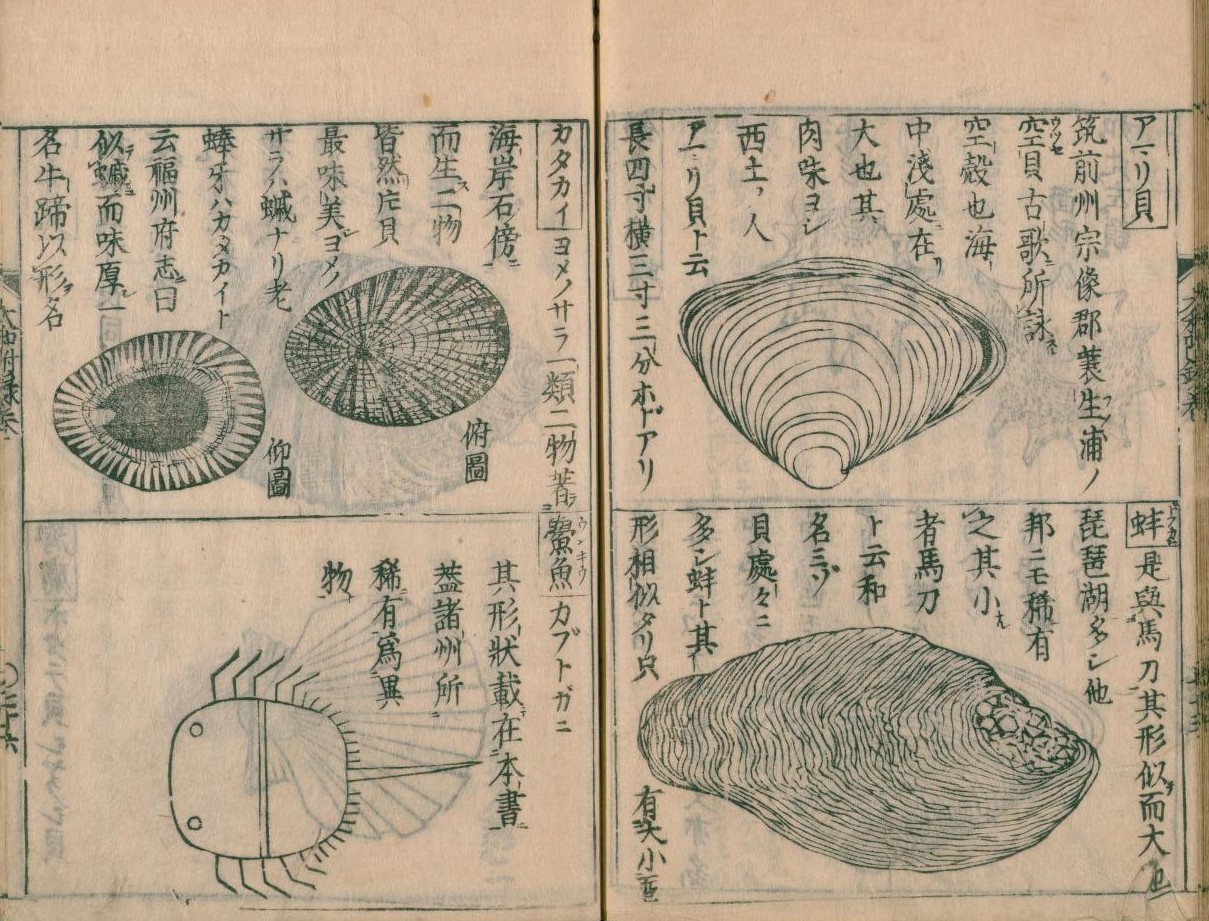 アマリ貝
筑前州宗像郡蓑生浦ノ
空貝古歌所詠
ウツセ
空殻也海
中淺處在リ
大也其
肉味ヨシ
西土ノ人
アマリ貝ト云
長四寸横三寸三分ホドアリ
蚌是與馬刀其形似而大也
琵琶湖多シ他
邦ニモ稀有
之其小
者馬刀
ト云和
名ミゾ
貝處々ニ
多シ蚌ト其
形相似タリ只
有大小
カタカイヨメノサラ一類二物
海岸石傍
而生ス二物
皆然片貝
最味美ヨメノ
サラハ蠘ナリ老
蜯牙ハカタカイト
云福州府志曰
似蠘而味厚一
名牛蹄以形名
俯圖
仰圖
鱟魚カブトガニ
其形状載在本書
蓋諸州所
稀有爲異
物
大和本草附録巻